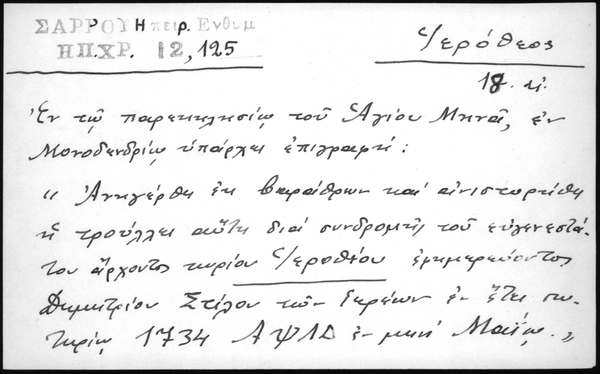 ΣΑΡΡΟΥ Ηπειρ. Ενθυμ
ΗΠ.ΧΡ. 12, 125
Ἱερόθεος
18. αἰ.
Ἐν τῷ παρεκκλησίῳ τοῦ Ἁγίου Μηνᾶ, ἐν
Μονοδενδρίῳ ὑπάρχει ἐπιγραφή:
« Ἀνηγέρθη ἐκ βαράθρων καί ἀνιστορήθη
ἡ τρούλλα αὕτη διά συνδρομῆς τοῦ εὐγενεστά-
του ἄρχοντος κυρίου Ἱεροθέου ἐφημερεύοντος
Δημητρίου Στίλου τῶν ἱερέων ἐν ἔτει σω-
τηρίῳ 1734 ΑΨΛΔ ἐν μηνί Μαΐῳ. »